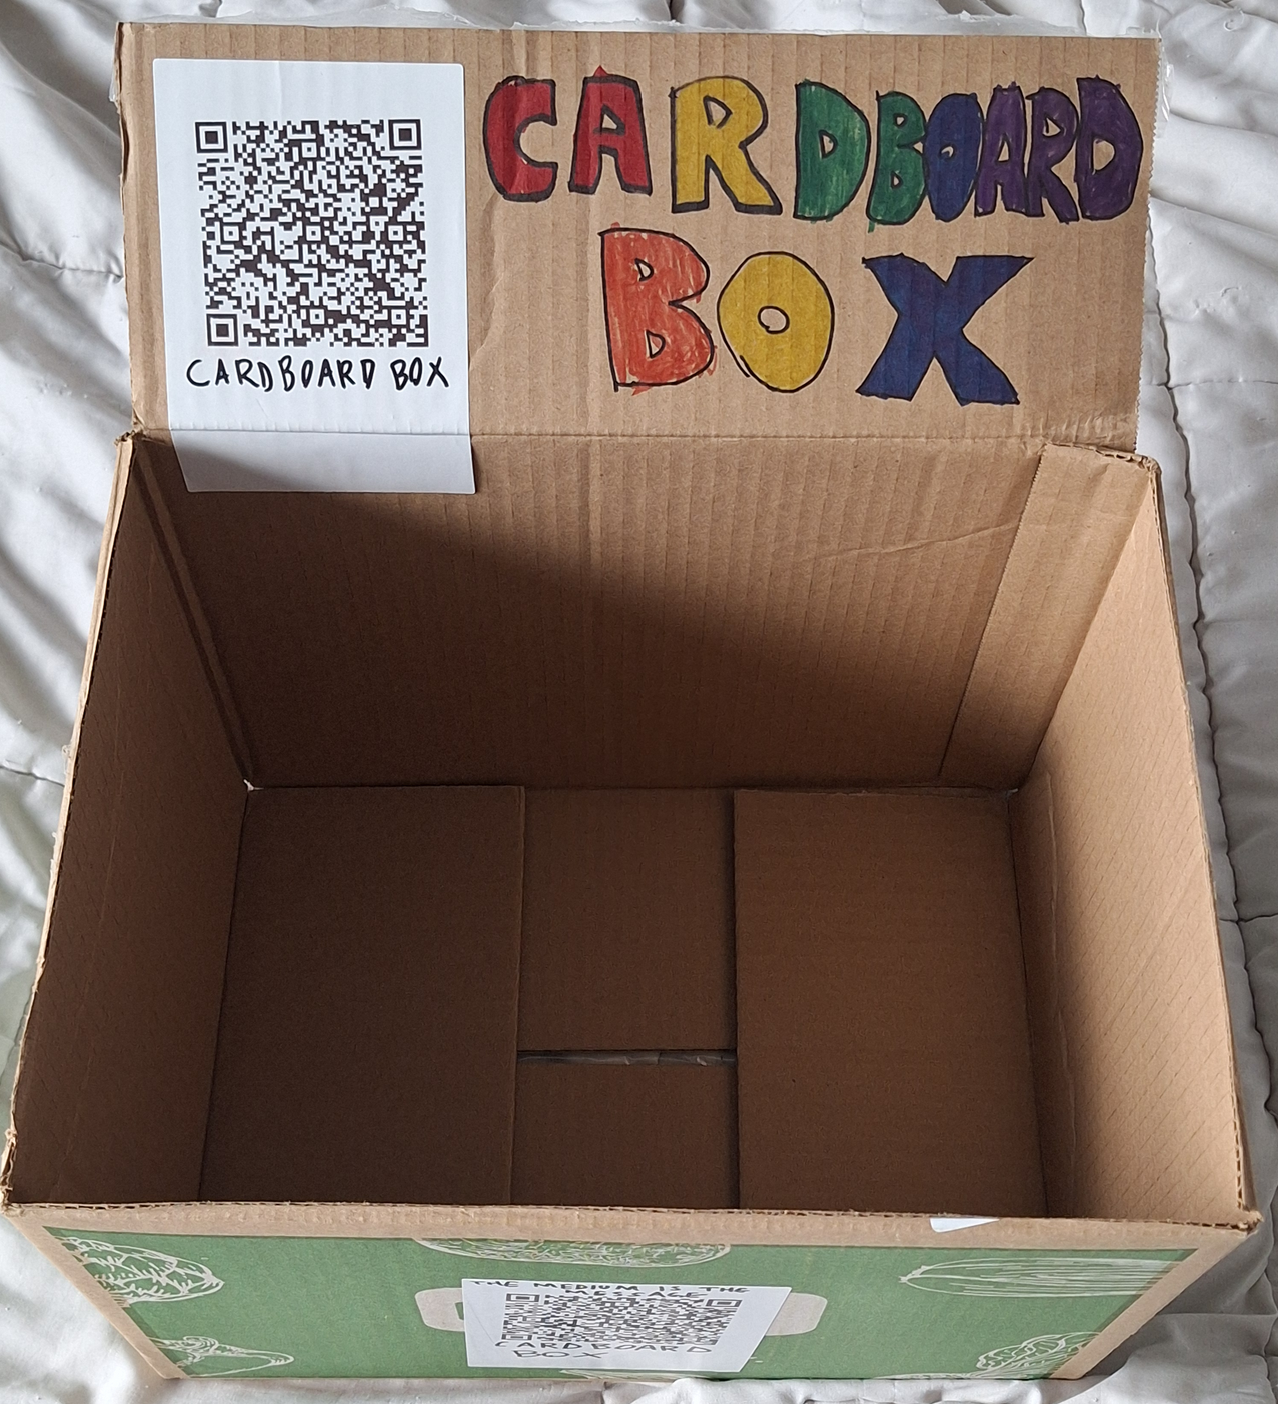 CARDBOARD
BOX
CARDBOARD BOX
THE MEDIUM IS THE
MESSAGE
CARDBOARD
BOX